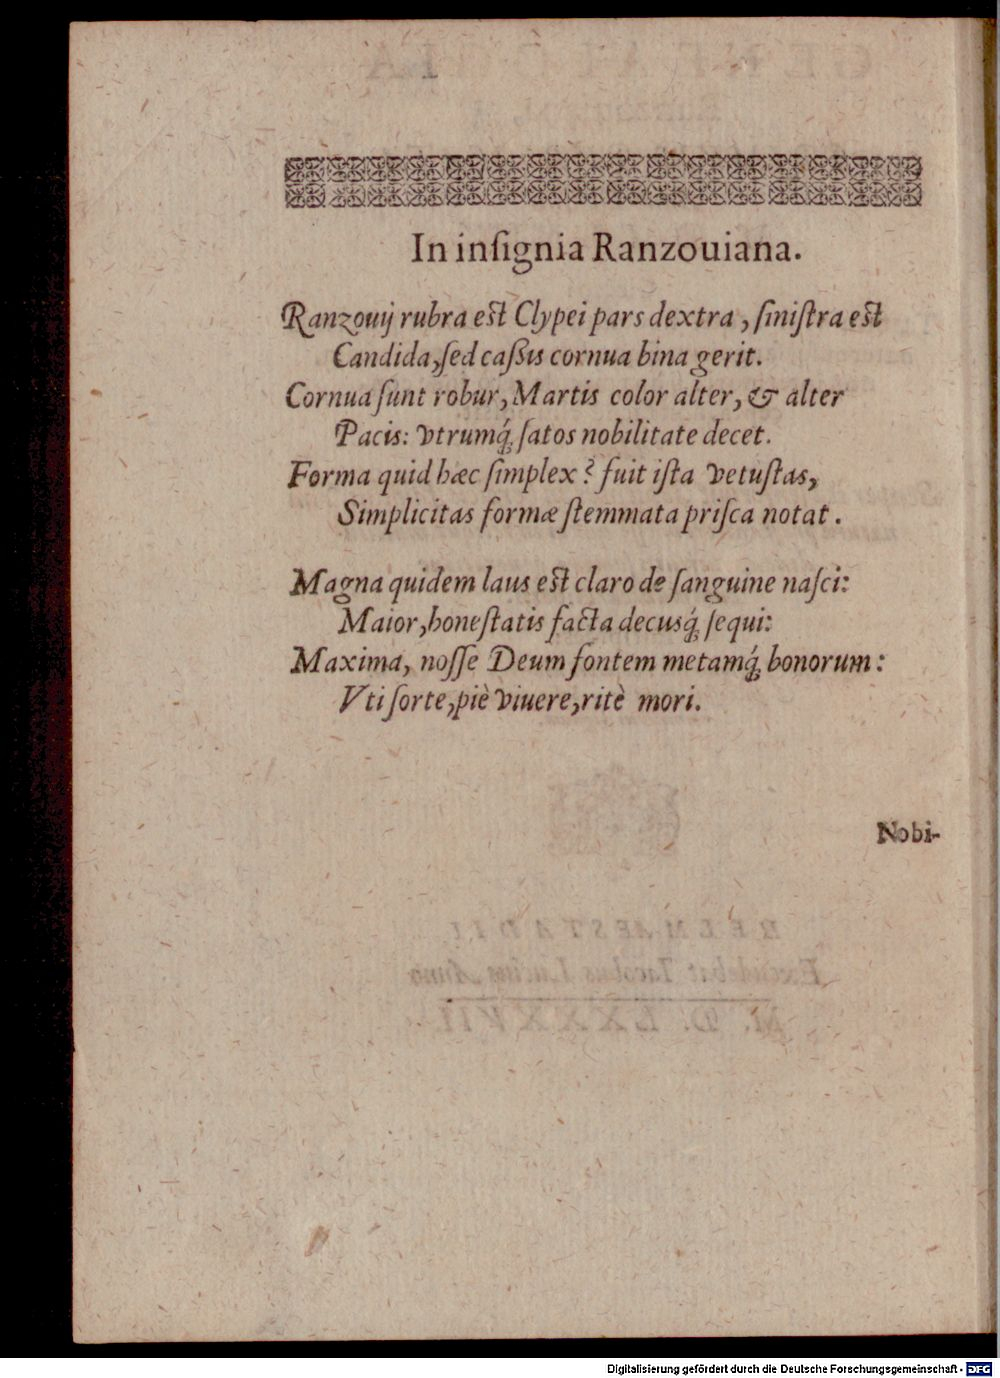 In inſignia Ranzouiana.
Ranzouij rubra est Clypei pars dextra, ſiniſtra est
Candida, ſed caſsis cornua bina gerit.
Cornua ſunt robur, Martis color alter, & alter
Pacis: vtrumq́; ſatos nobilitate decet.
Forma quid hæc ſimplex? fuit iſta vetuſtas,
Simplicitas formæ ſtemmata priſca notat.
Magna quidem laus est claro de ſanguine naſci:
Maior, honeſtatis facta decusq́; ſequi:
Maxima, noſſe Deum fontem metamq́; bonorum:
Vti ſorte, piè viuere, ritè mori.
Nobi-
HELMAESTADII
Excudebat Iacobus Lucius Anno
M. D. LXXXVII.
Digitalisierung gefördert durch die Deutsche Forschungsgemeinschaft - DFG